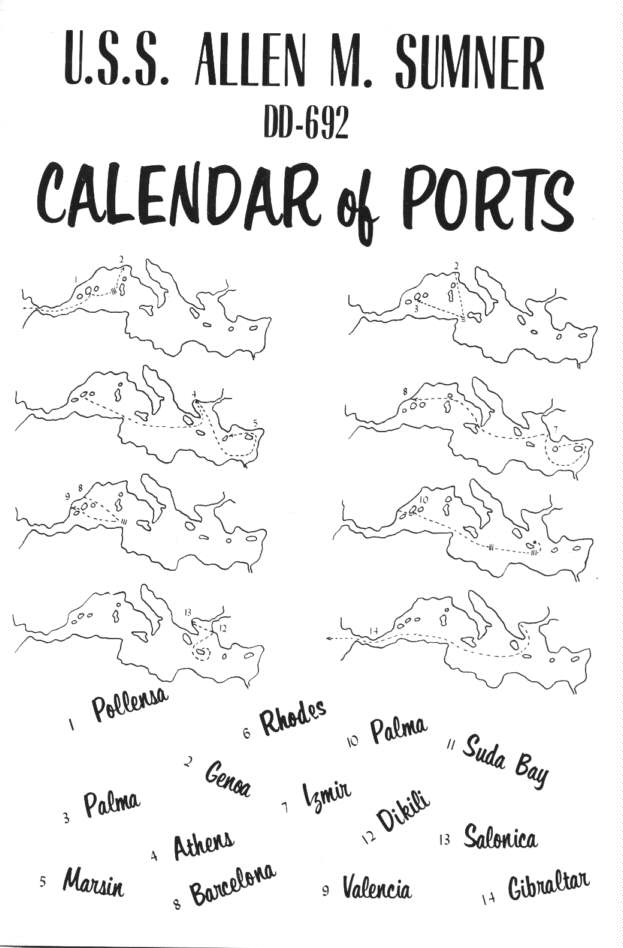 U.S.S. ALLEN M. SUMNER
DD-692
CALENDAR of PORTS
1 2
2 3
4 5
8 7
9 8
10
13 12
14
1 Pollensa
6 Rhodes
10 Palma
11 Suda Bay
2 Genoa
3 Palma
7 Izmir
12 Dikili
4 Athens
13 Salonica
5 Marsin
8 Barcelona
9 Valencia
14 Gibraltar